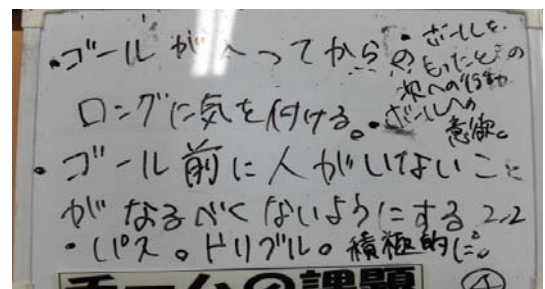 ・ゴールが入ってからの
ロングに気を付ける。
・ボールを
もったときの
次への行動
・ボールへの
意欲。
・ゴール前に人がいないこと
がなるべくないようにする
・パス。ドリブル。積極的に。
チームの課題